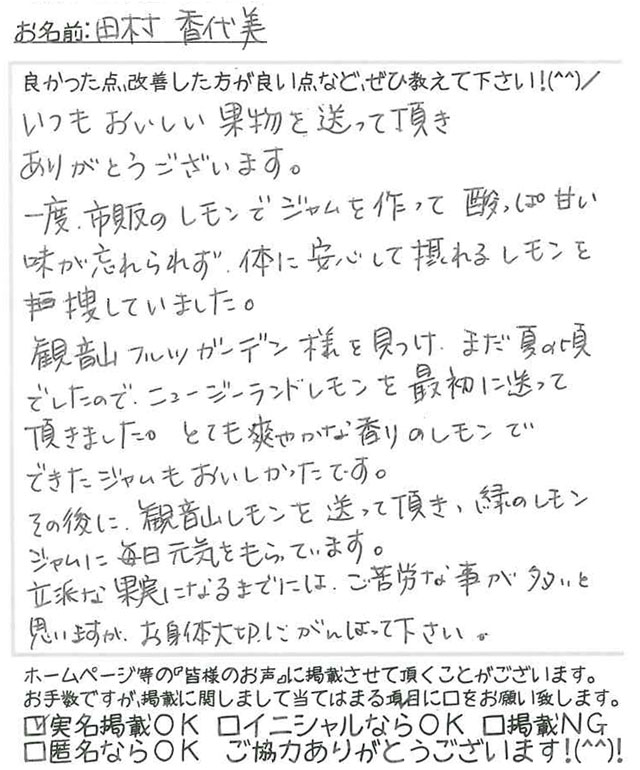 お名前:田村 香代美
良かった点、改善した方が良い点など、ぜひ教えて下さい!(^^)/
いつもおいしい果物を送って頂き
ありがとうございます。
一度、市販のレモンでジャムを作って酸っぱ甘い
味が忘れられず、体に安心して摂れるレモンを
捜していました。
観音山フルーツガーデン様を見つけ、まだ夏の頃
でしたので、ニュージーランドレモンを最初に送って
頂きました。とても爽やかな香りのレモンで
できたジャムもおいしかったです。
その後に、観音山レモンを送って頂き、緑のレモン
ジャムに毎日元気をもらっています。
立派な果実になるまでには、ご苦労な事が多いと
思いますが、お身体大切にがんばって下さい。
ホームページ等の『皆様のお声』に掲載させて頂くことがございます。
お手数ですが、掲載に関しまして当てはまる項目に□をお願い致します。
☑実名掲載OK □イニシャルならOK □掲載NG
□匿名ならOK ご協力ありがとうございます!(^^)!